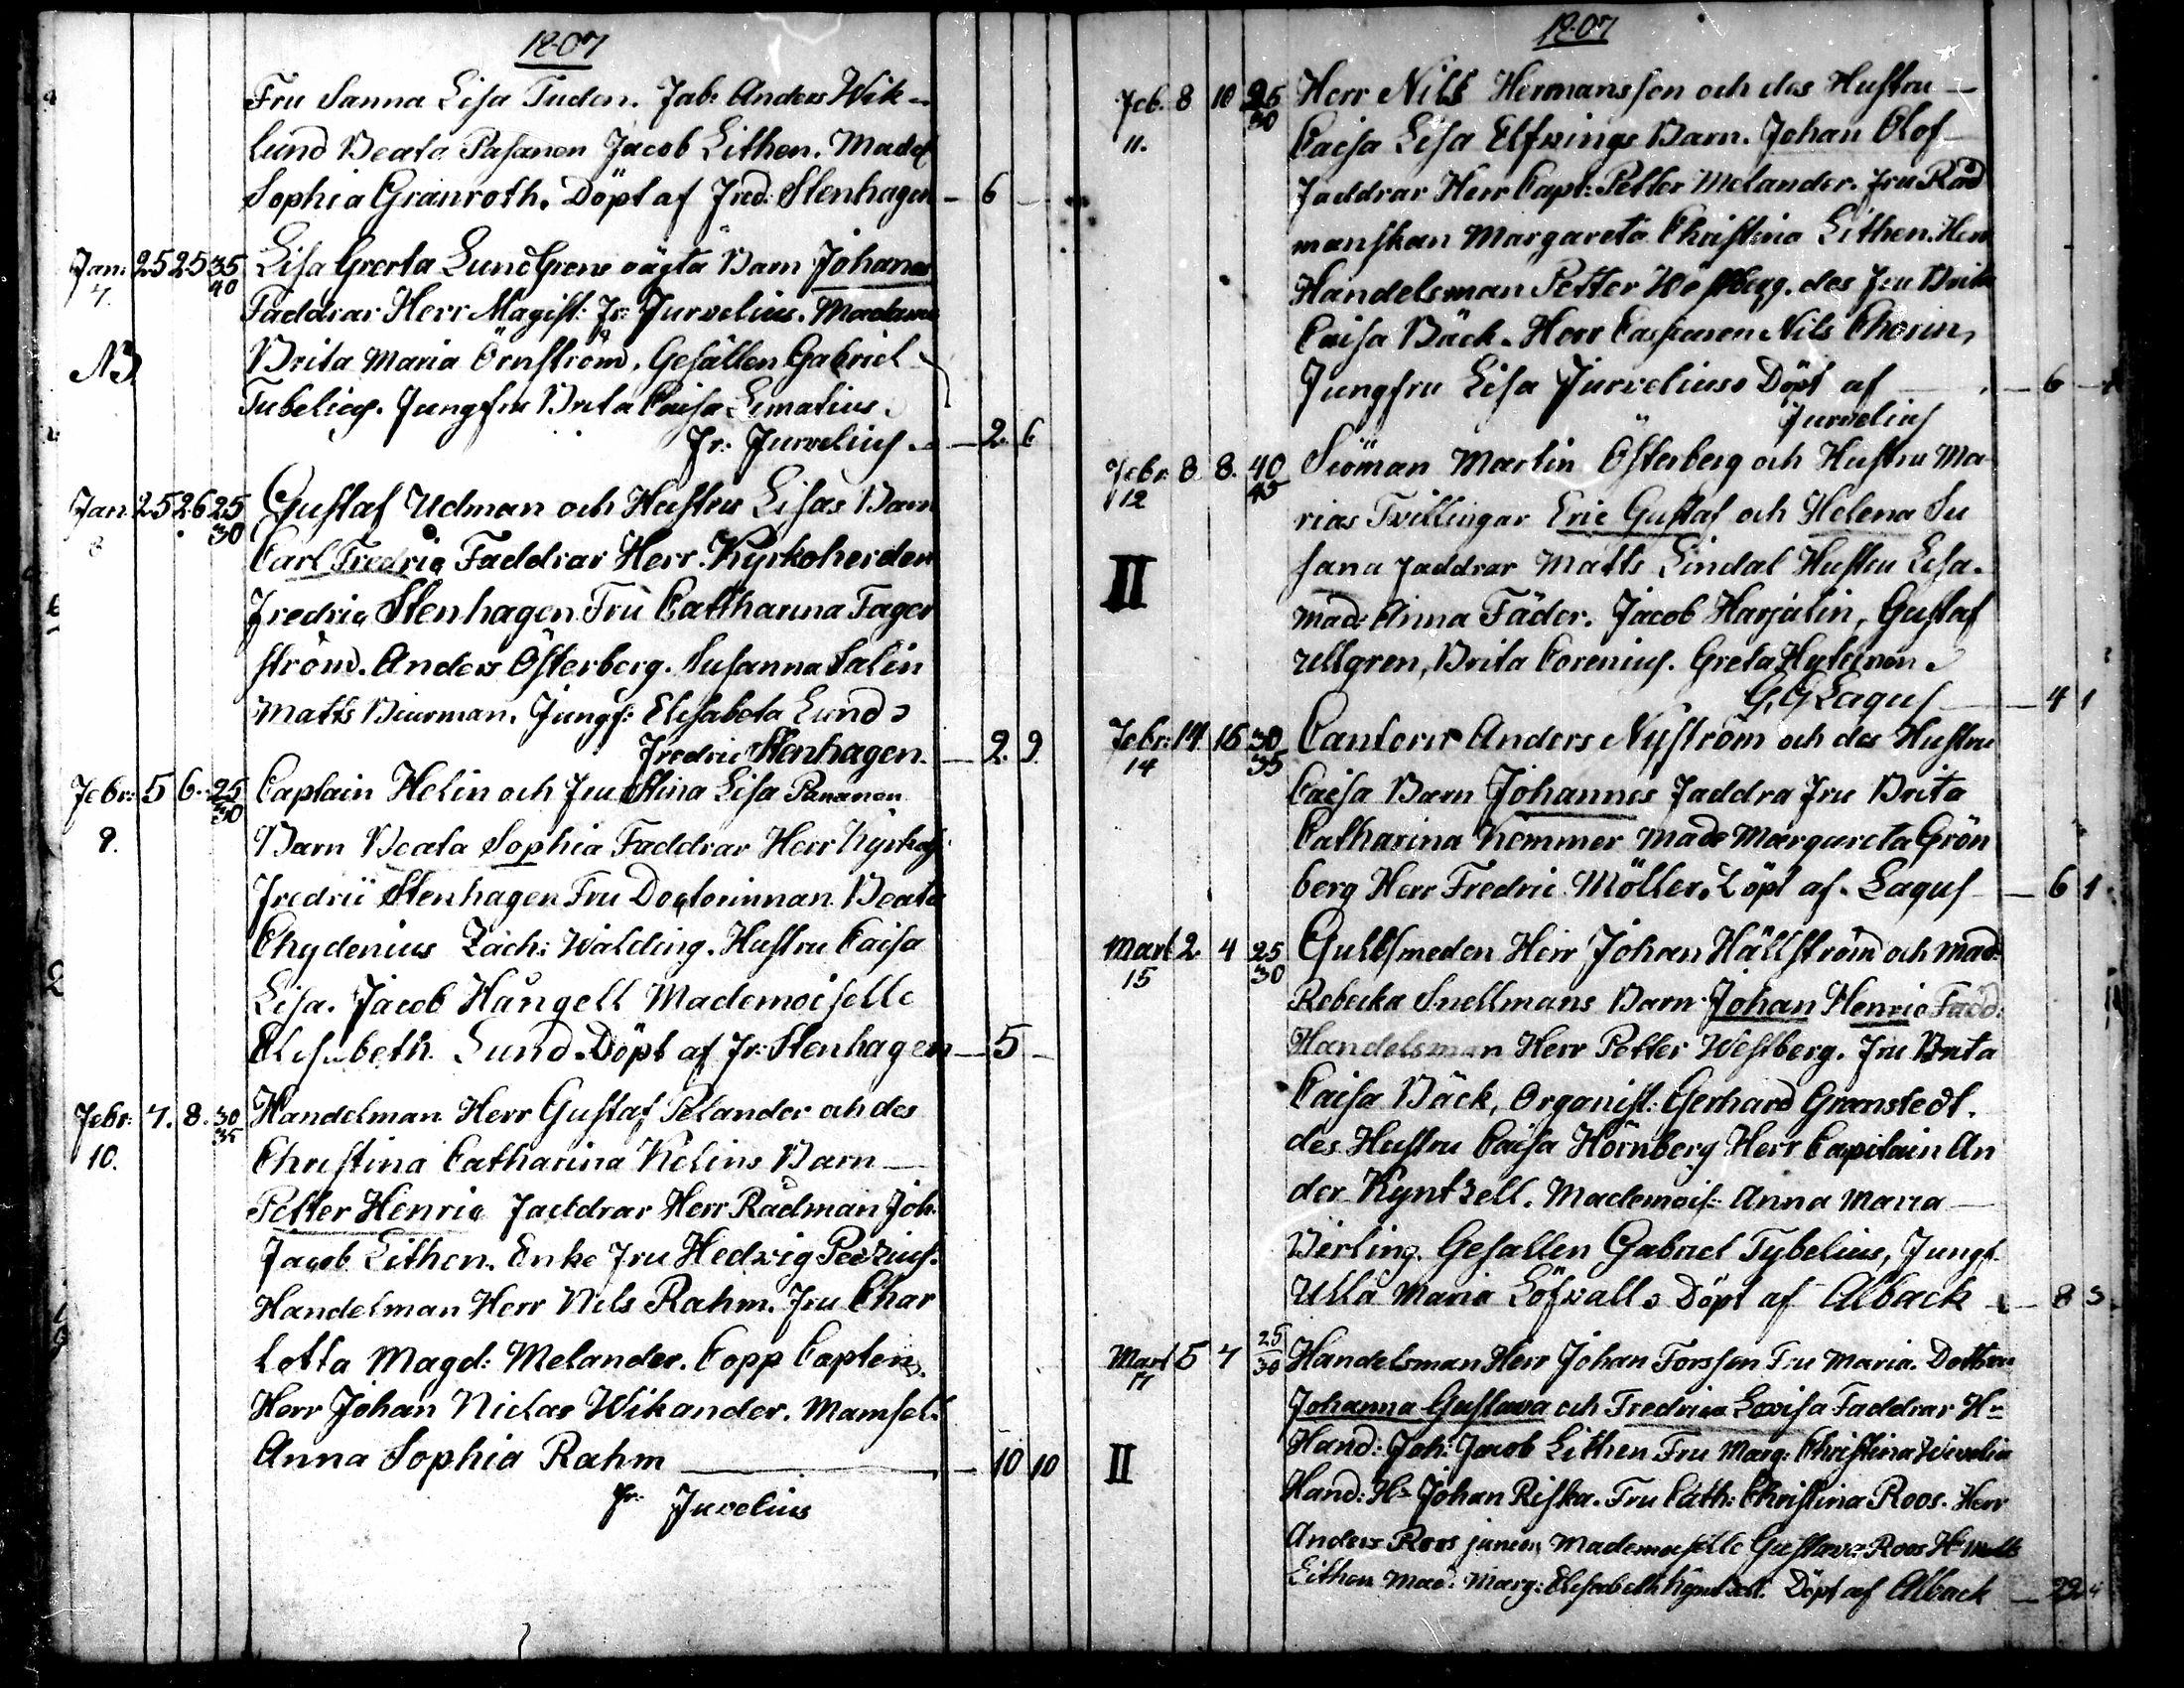 1807
Fru Sanna Lisa Tuden. Jab: Anders Wik-
lund Beata Pasanen Jacob Lithen. Madel
Sophia Granroth. Döpt af Fred: Stenhagen — 6 —
Jan: 25 25 35 Lisa Greta Lundgrens oägta Barn Johannes
7. 40 Faddrar Herr Magist: Fr: Jurvelius. Madame
NB Brita Maria Örnström, Gesällen Gabriel
Tubelius. Jungfru Brita Caisa Limatius.
Fr: Jurvelius — 2. 6
Jan: 25 26 25 Gustaf Udman och Hustru Lisas Barn
8 30 Carl Fredric Faddrar Herr Kyrkoherden
Fredric Stenhagen Fru Catharina Fager
ström. Anders Österberg. Susanna Salin
Matts Buurman. Jungf: Elisabeta Lund
Fredric Stenhagen. — 2. 9.
Febr: 5 6. 25 Captain Helin och Fru Stina Lisa Pananen
9. 30 Barn Beata Sophia Faddrar Herr Kyrkoh:
Fredric Stenhagen Fru Doctorinnan Beata
Chydenius Zach: Walding. Hustru Caisa
Lisa. Jacob Hångell Mademoiselle
Elisabeth Lund. Döpt af Fr: Stenhagen — 5 —
Febr: 7. 8. 30 Handelman Herr Gustaf Pelander och des
10. 35 Christina Catharina Kelins Barn —
Petter Henric Faddrar Herr Rådman Joh:
Jacob Lithen. Enke Fru Hedvig Peezius.
Handelman Herr Nils Rahm. Fru Char
lotta Magd: Melander. Copp Capten
Herr Johan Niclas Wikander. Mamsell
Anna Sophia Rahm — 10 10
Fr: Juvelius
1807
Feb. 8 10 25 Herr Nils Hermansson och des Hustru —
11. 30 Caisa Lisa Elfvings Barn. Johan Olof
Faddrar Herr Capt: Petter Melander. Fru Råd
manskan Margareta Christina Lithen. Herr
Handelsman Petter Westberg. des Fru Brita
Caisa Bäck. Herr Nils Chorin,
Jungfru Lisa Jurvelius Döpt af — 6 —
Jurvelius
Febr: 8 8. 40 Siöman Martin Österberg och Hustru Ma
12 45 rias Tvillingar Eric Gustaf och Helena Su
II sana Faddrar Matts Lindal Hustru Lisa.
Mad: Anna Fäder. Jacob Harjulin, Gustaf
Ullgren, Brita Corenius. Greta Hyteinen
G. G Lagus — 4 1
Febr: 14 16 30 Cantorn Anders Nyström och des Hustru
14 35 Caisa Barn Johannes Faddra Fru Brita
Catharina Kemmer Mad: Margareta Grön
berg Herr Fredric Möller. Döpt af Lagus — 6 1
Mart 2. 4 25 Guldsmeden Herr Johan Hällström och Mad:
15 30 Rebecka Snellmans Barn Johan Henric Fadd:
Handelsman Herr Petter Westberg. Fru Brita
Caisa Bäck, Organist: Gerhard Granstedt.
des Hustru Caisa Hörnberg Herr Capitain An
der Kyntzell. Mademois: Anna Maria —
Berling. Gesällen Gabriel Tybelius, Jungf.
Ulla Maria Löfvall Döpt af Alback — 8 3
Mart 5 7 25 Handelsman Herr Johan Forssen Fru Maria. Dottrar
17 30 Johanna Gustava och Fredrica Lovisa Faddrar Hr
II Hand: Joh: Jacob Lithen Fru Marg: Christina Wivelin
Hand: Hr Johan Riska. Fru Cath: Christina Roos. Herr
Anders Roos junior, Mademoiselle Gustava Roos Hr Matts
Lithen Mad: Marg: Elisabeth Kyntzell. Döpt af Alback — 22